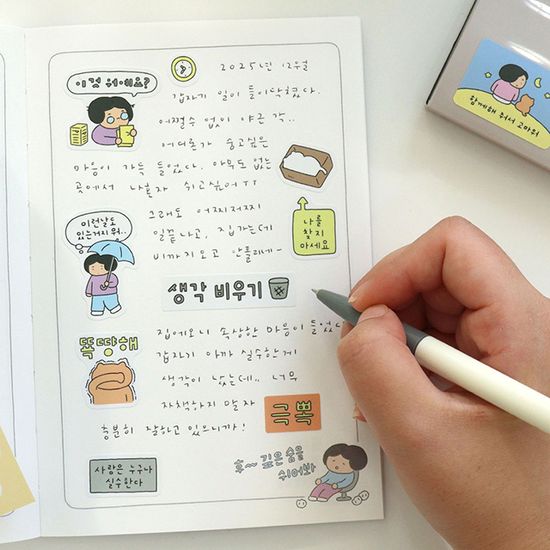 2025년 12월
이것 뭐에요?
갑자기 일이 들이닥쳤다.
어쩔수 없이 야근 각..
어디론가 숨고싶은
마음이 가득 들었다. 아무도 없는
곳에서 나혼자 쉬고싶어ㅠㅠ
그래도 어찌저찌
일끝나고, 집가는데
비까지오고 안풀리네~
이런날도
있는거지 뭐..
나를
찾지
마세요
생각 비우기
집에오니 속상한 마음이 들었
갑자기 아까 실수한게
생각이 났는데.. 너무
자책하지 말자
충분히 잘하고 있으니까!
똑땅해
극뽁
사람은 누구나
실수한다
후~ 깊은 숨을
쉬어봐
함께해 줘서 고마워